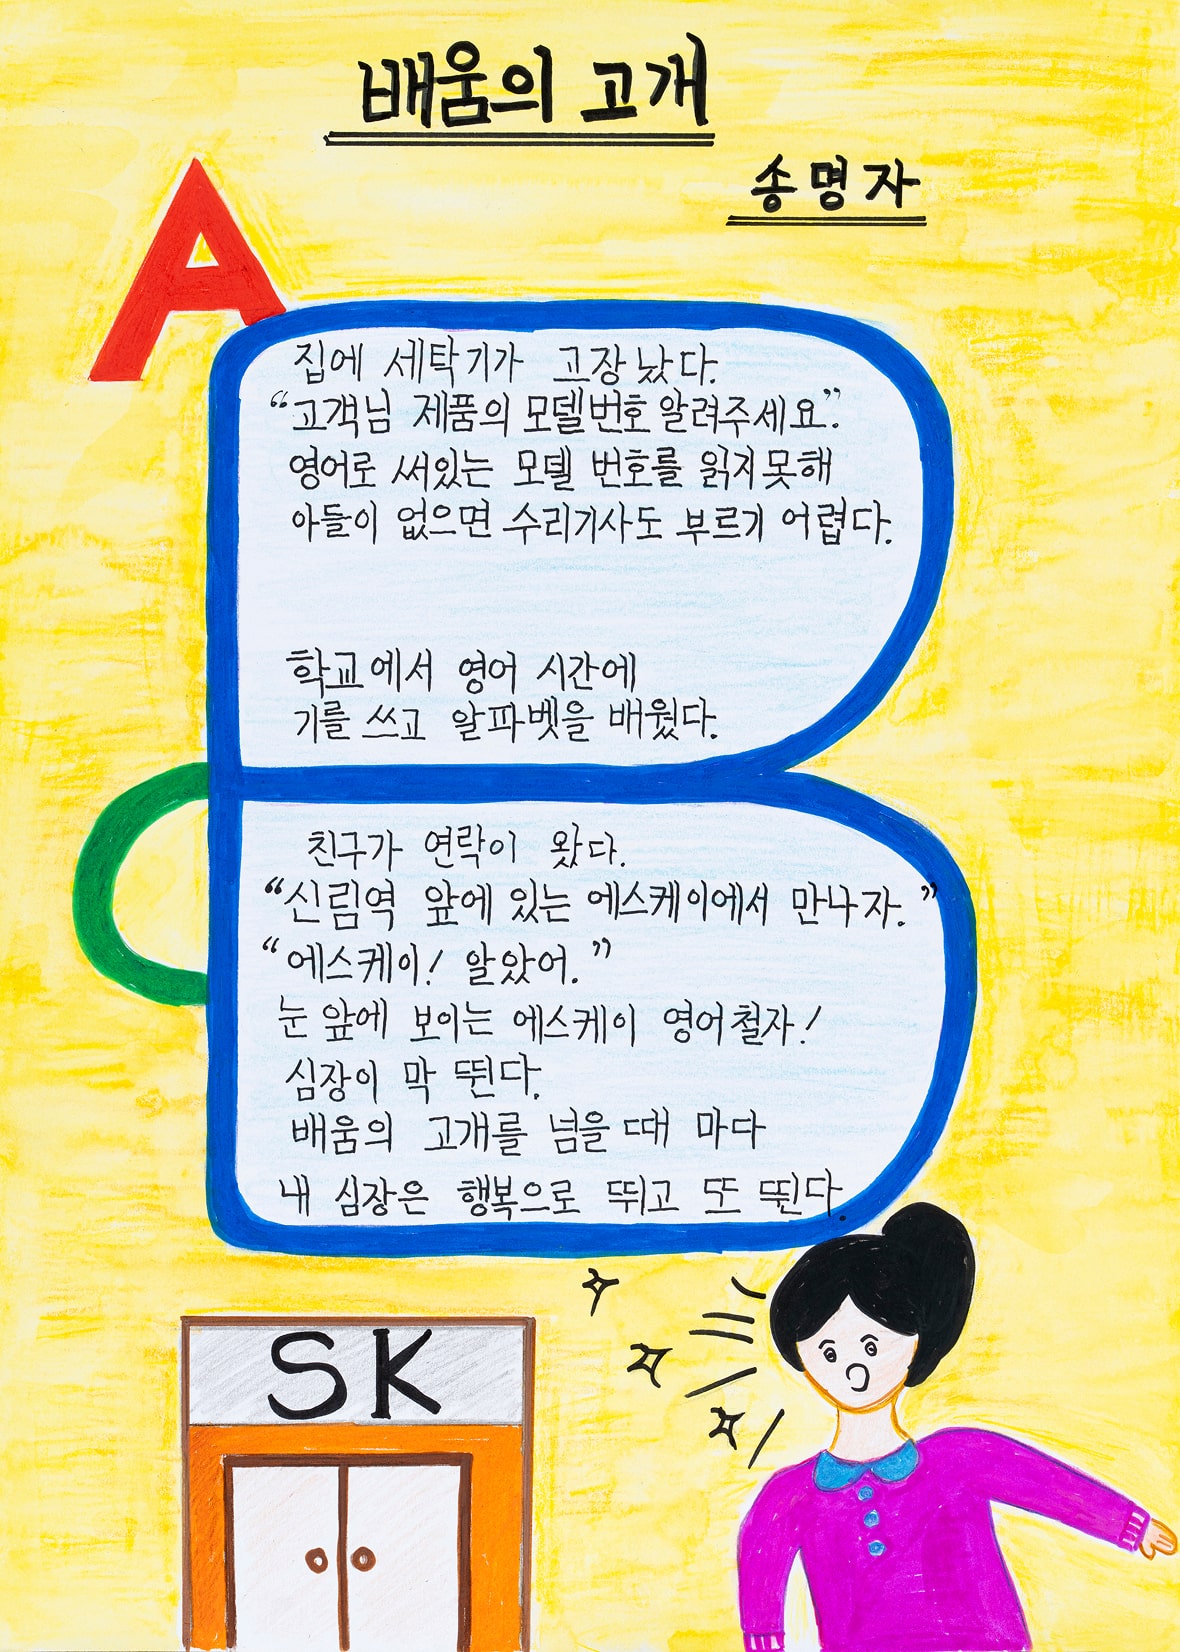 배움의 고개
송명자
A
집에 세탁기가 고장났다.
“고객님 제품의 모델번호 알려주세요”.
영어로 써있는 모델 번호를 읽지못해
아들이 없으면 수리기사도 부르기 어렵다.
학교에서 영어 시간에
기를 쓰고 알파벳을 배웠다.
B
C
친구가 연락이 왔다.
“신림역 앞에 있는 에스케이에서 만나자.”
“에스케이! 알았어.”
눈 앞에 보이는 에스케이 영어철자!
심장이 막 뛴다.
배움의 고개를 넘을 때 마다
내 심장은 행복으로 뛰고 또 뛴다.
SK